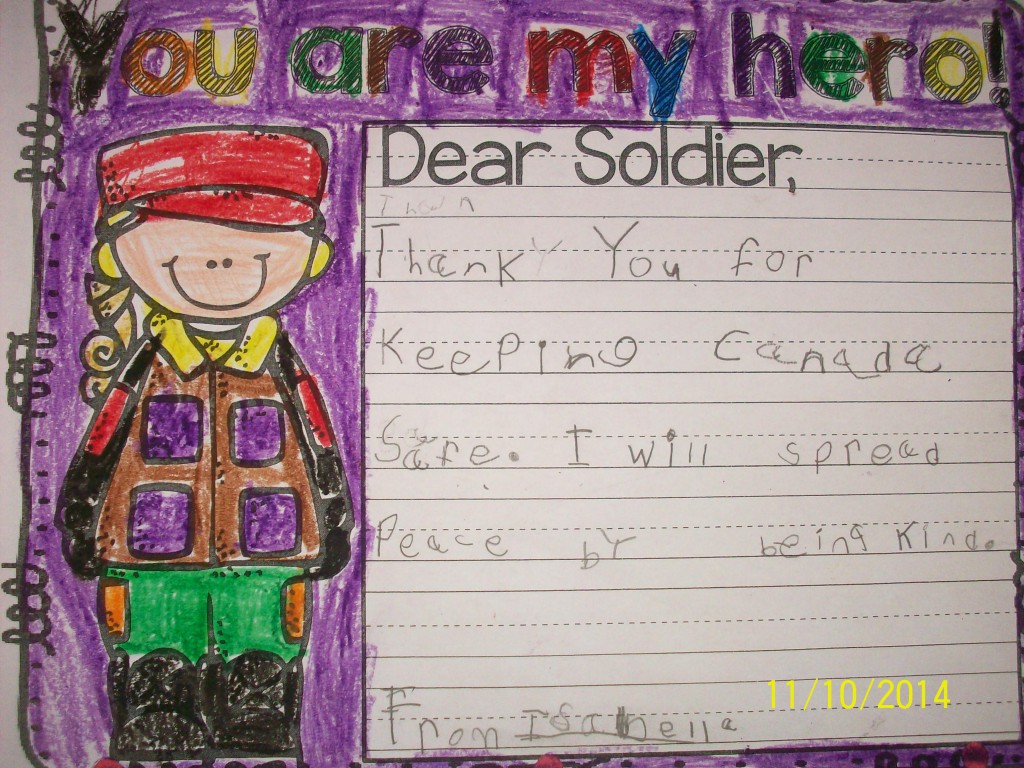 You are my hero!
Dear Soldier,
Than
Thank You for
Keeping Canada
Safe. I will spread
Peace by being Kind.
From Isabella
11/10/2014